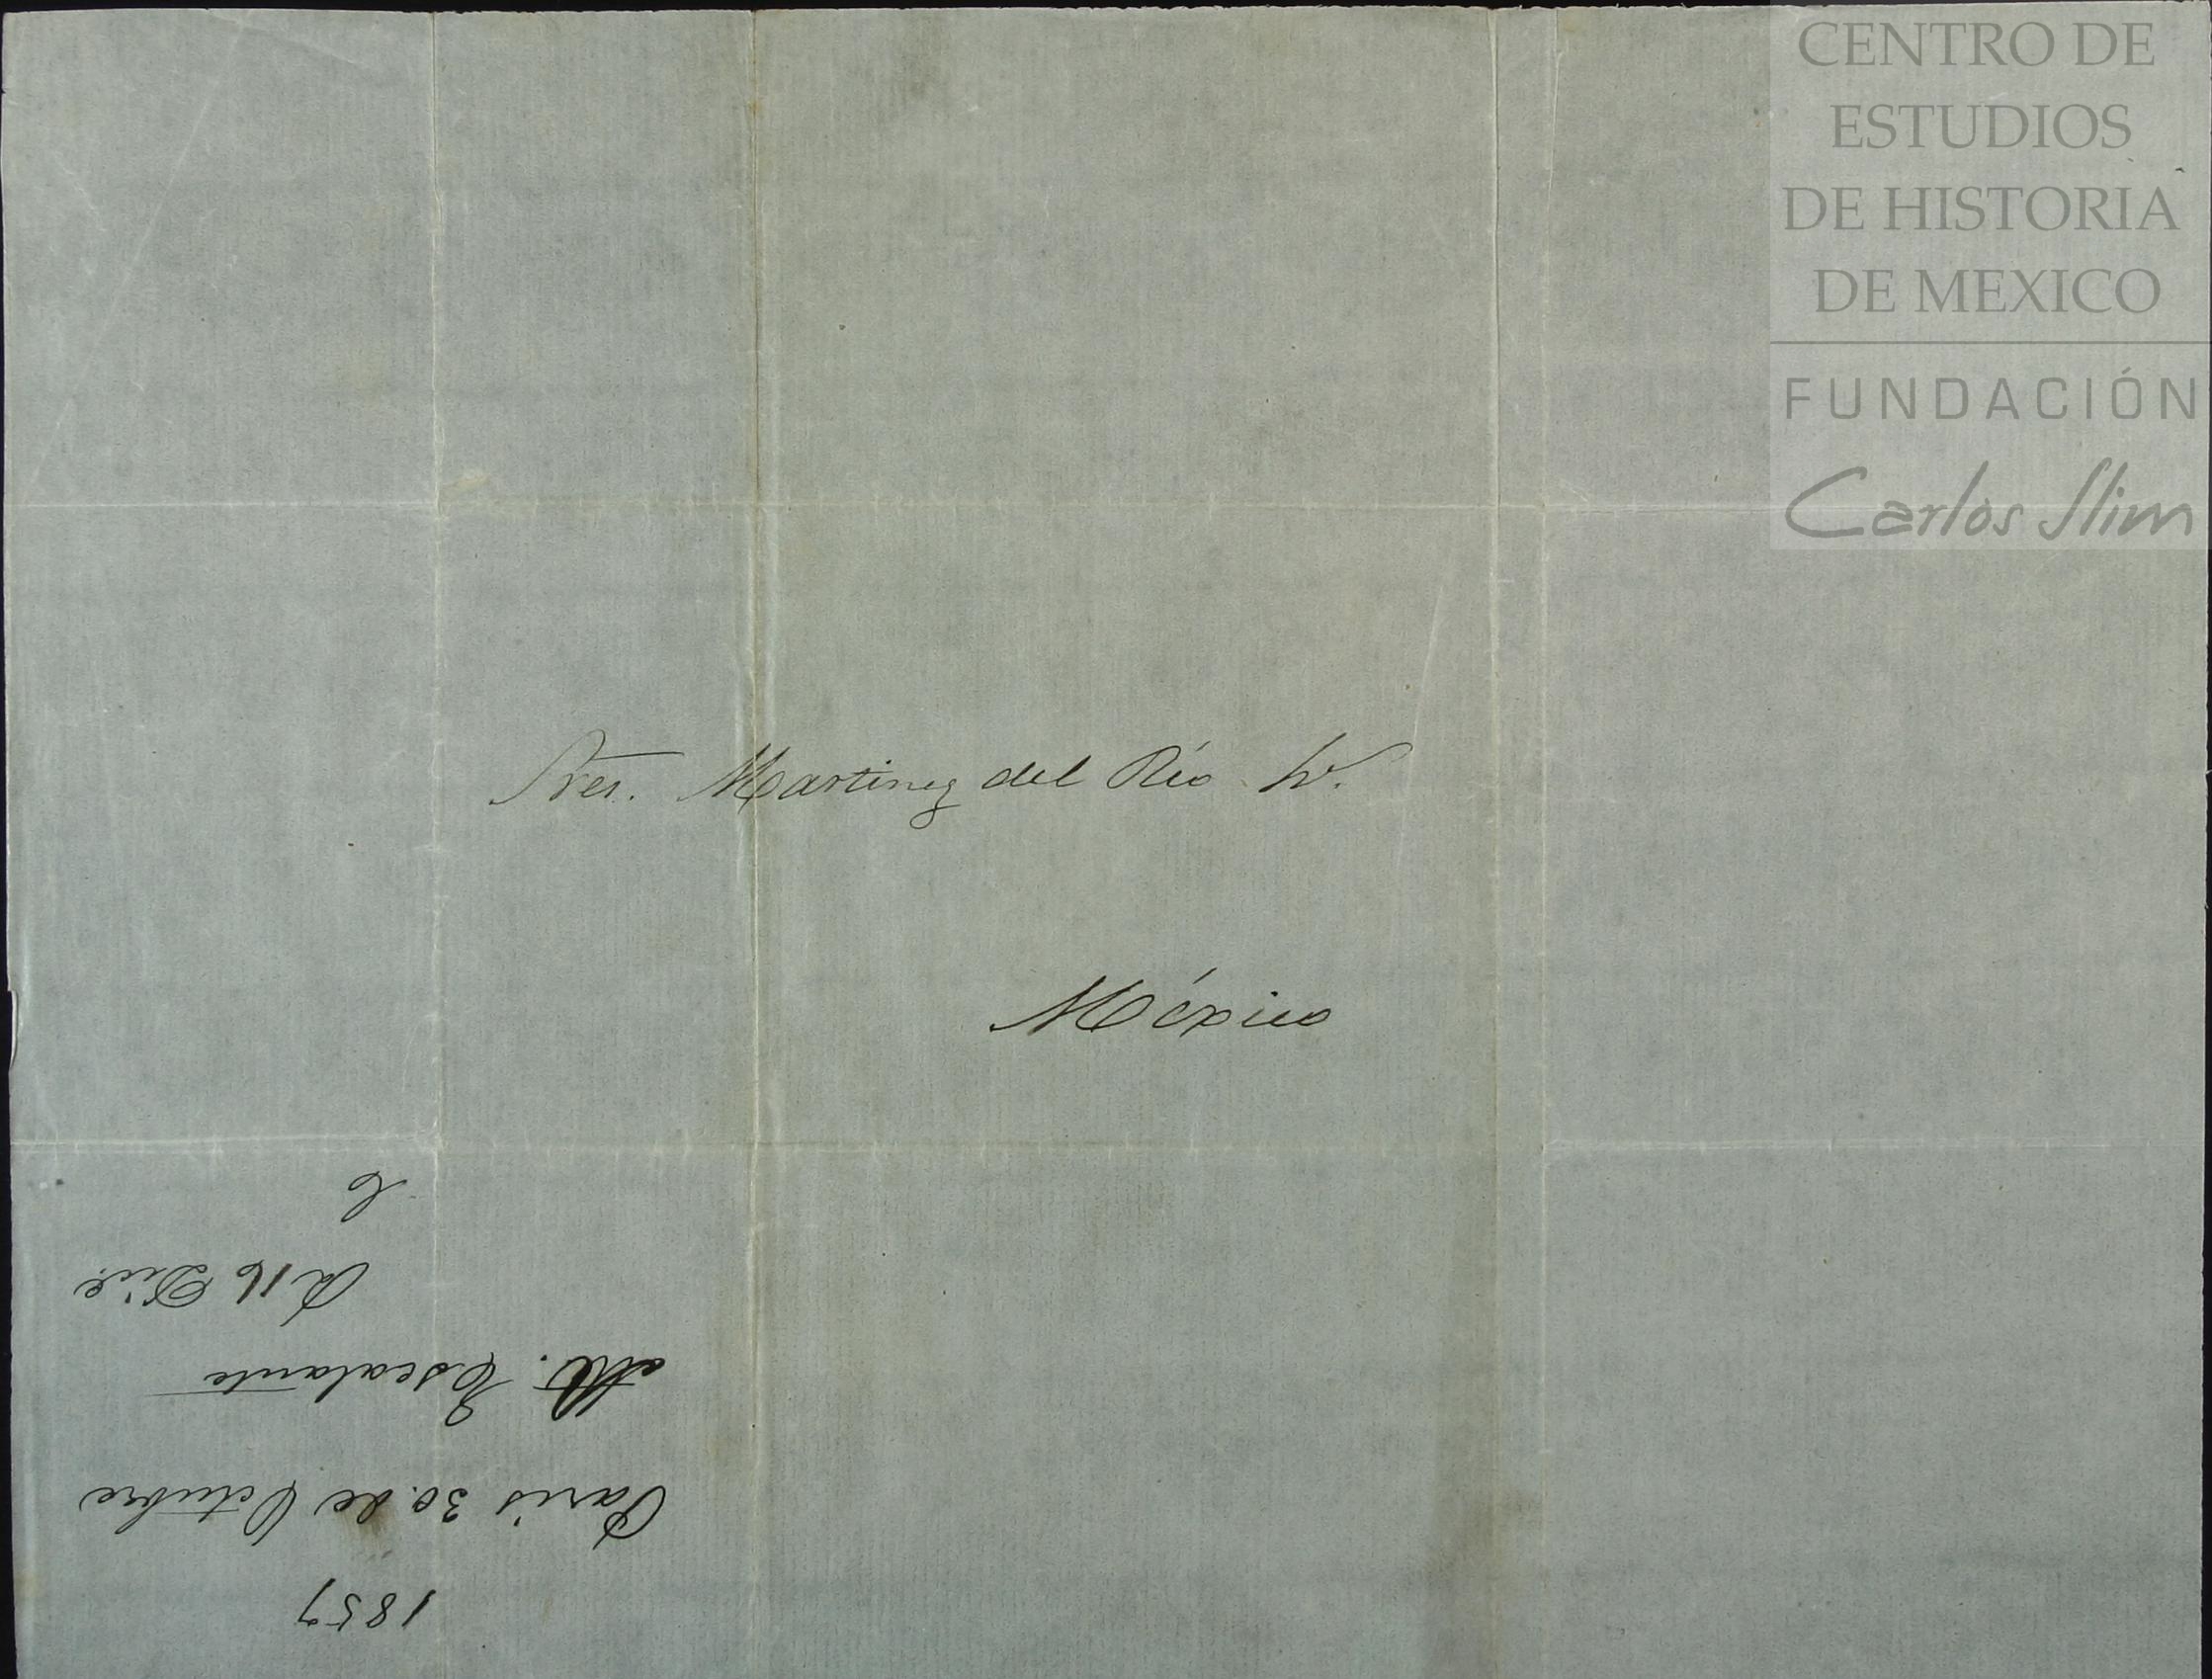 CENTRO DE
ESTUDIOS
DE HISTORIA
DE MEXICO
FUNDACIÓN
Carlos Slim
Sres. Martinez del Río Hs.
México
1857
Paris 30. de Octubre
M. Escalante
R 16 Dice